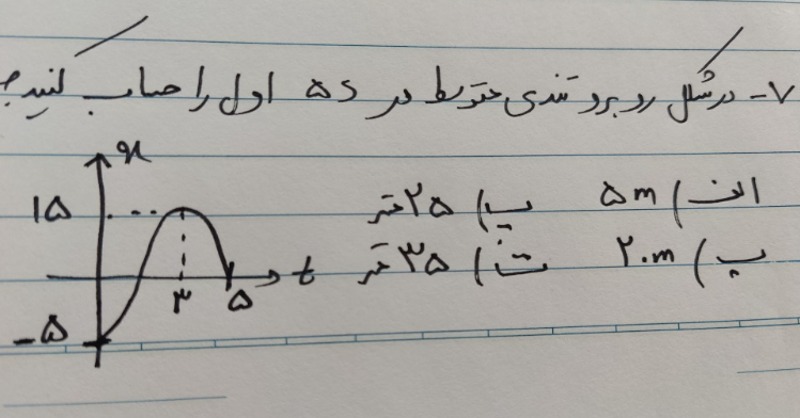 ۷- در شکل روبرو تندی متوسط در ۵s اول را حساب کنید؟
الف) ۵m
پ) ۲۵ متر
ب) ۲۰m
ت) ۳۵ متر
x
۱۵
t
۳
۵
-۵